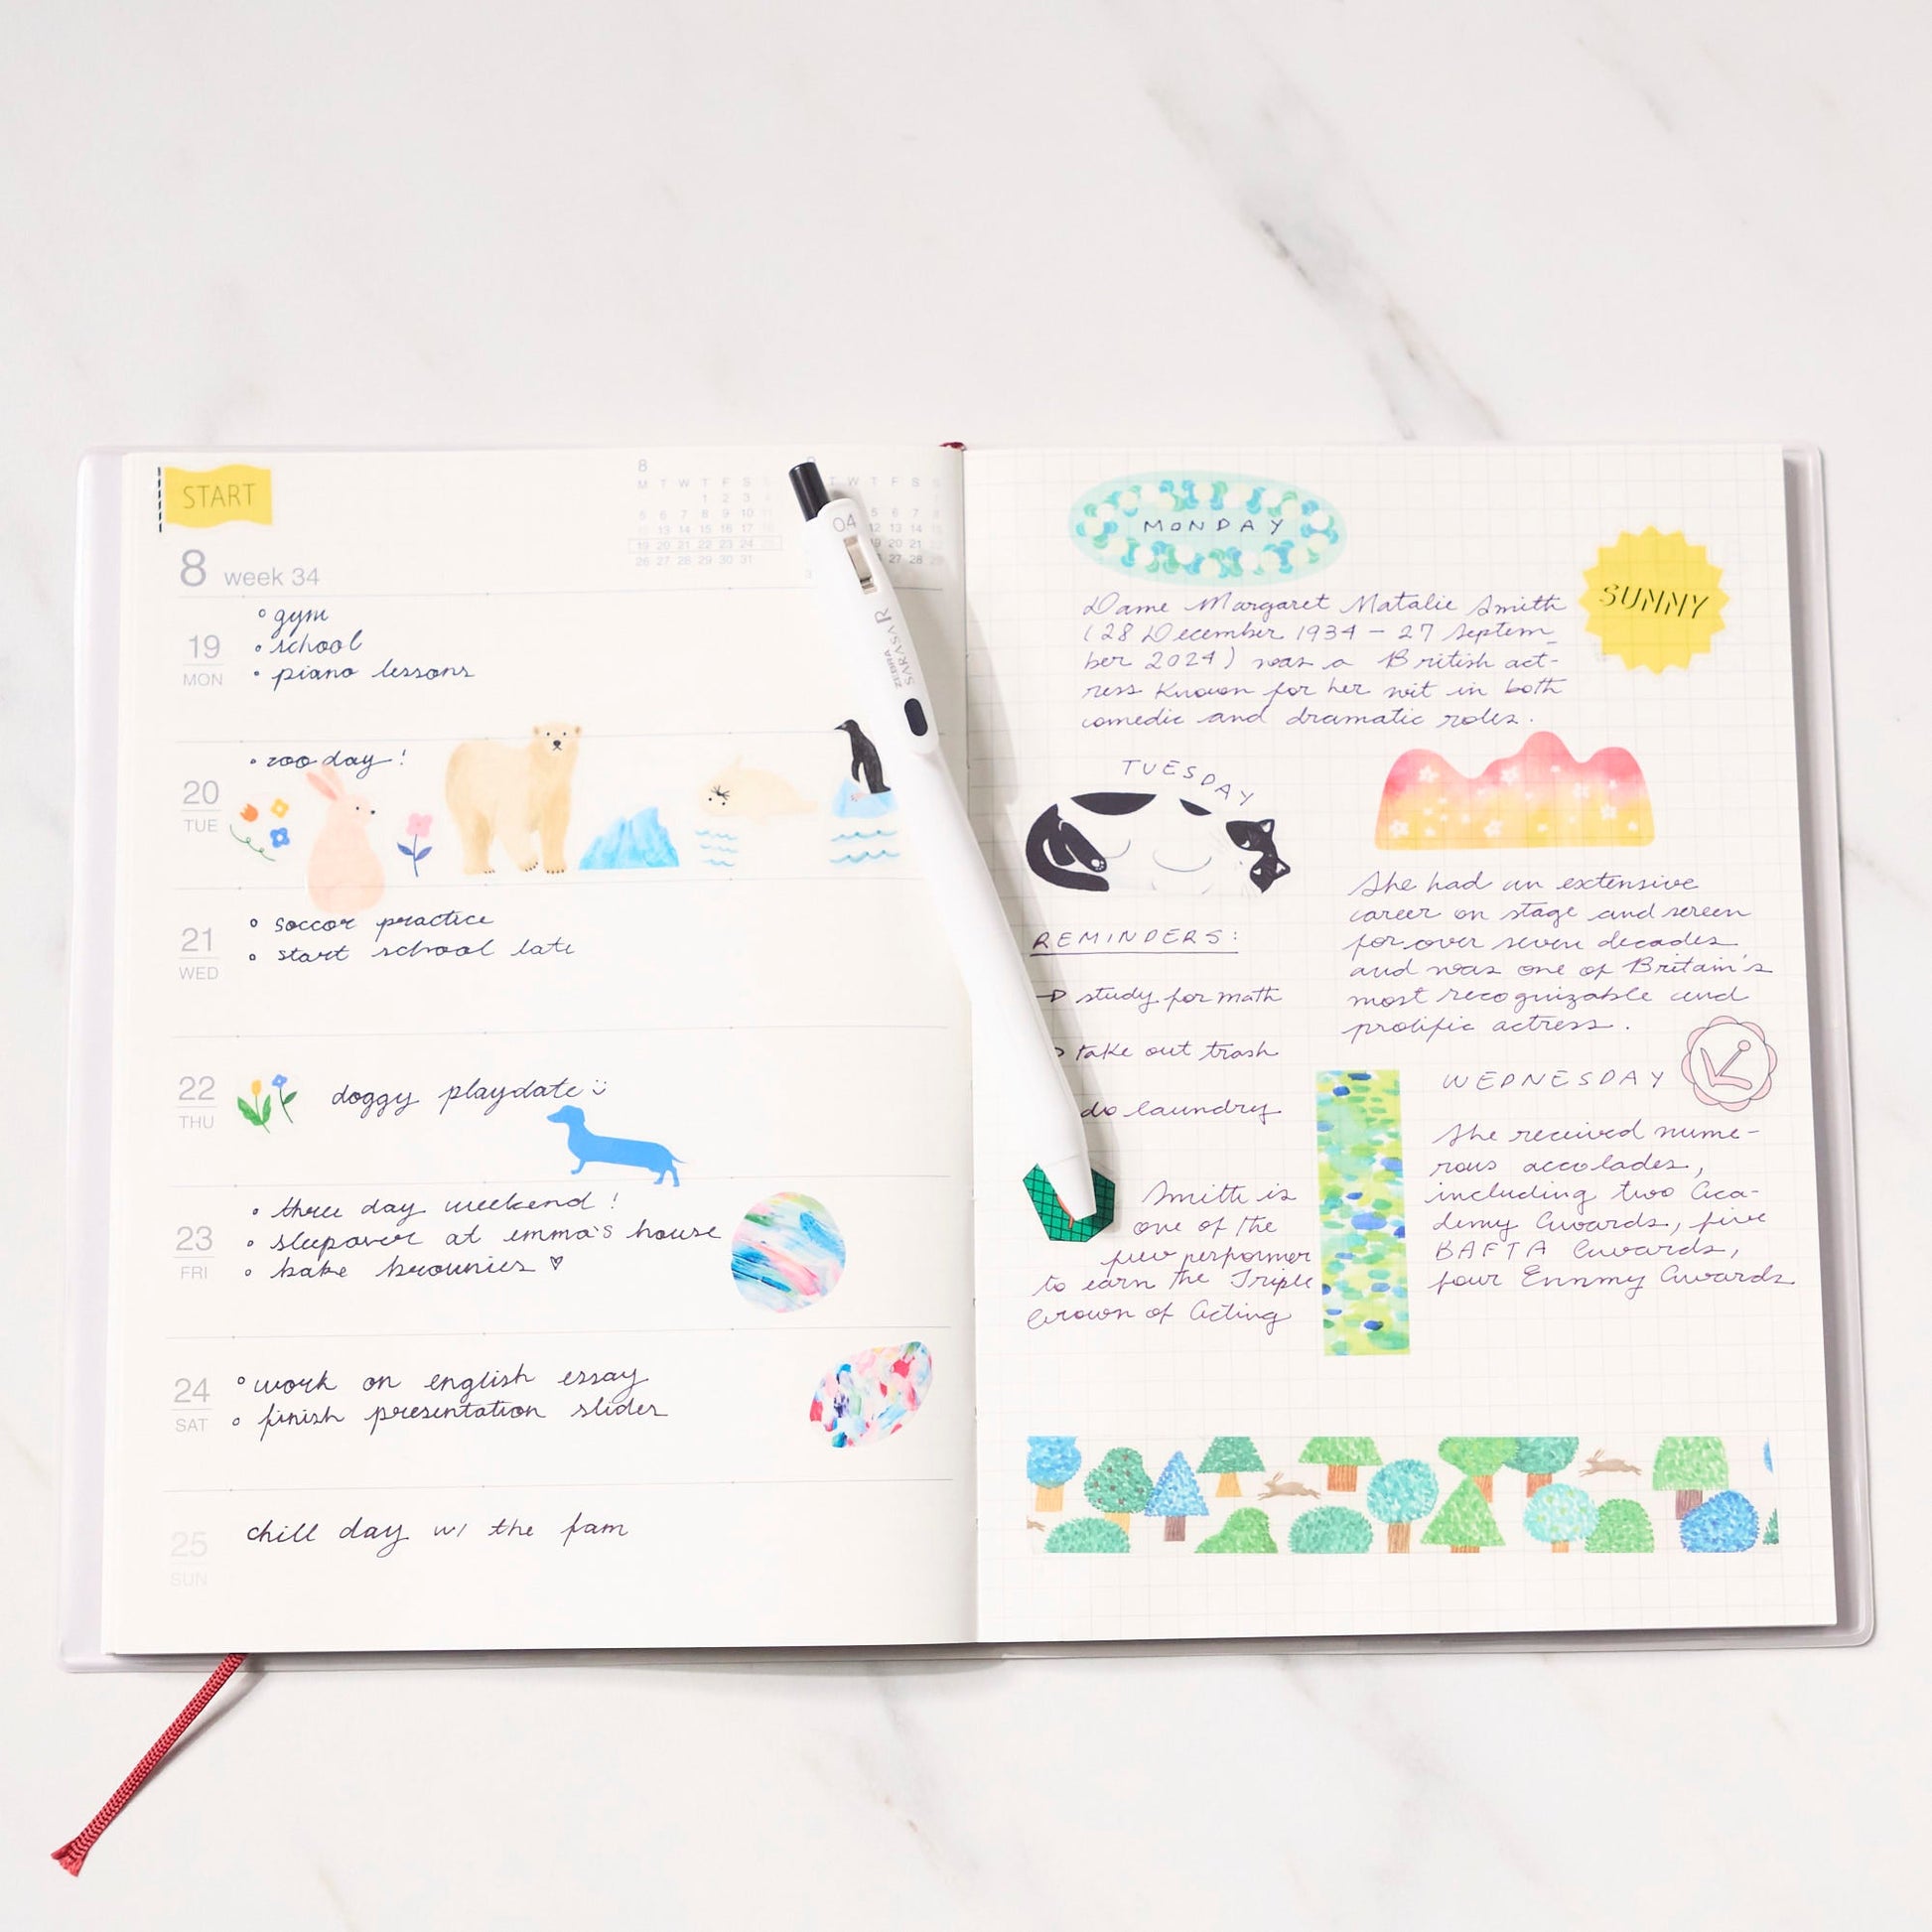 START
8 week 34
8
M T W T F S S
1 2 3
5 6 7 8 9 10
12 13 14 15 16 17
19 20 21 22 23 24
26 27 28 29 30 31
T W T F S S
5 6 7 8
12 13 14
19 20 21
27 28
19
MON
° gym
° school
• piano lessons
20
TUE
• zoo day!
21
WED
° soccor practice
° start school late
22
THU
doggy playdate ü
23
FRI
• three day weekend!
° sleepover at emma's house
° bake brownies ♡
24
SAT
° work on english essay
° finish presentation slides
25
SUN
chill day w/ the fam
04
ZEBRA
SARASA R
MONDAY
SUNNY
Dame Margaret Natalie Smith
(28 December 1934 - 27 Septem-
ber 2024) was a British act-
ress known for her wit in both
comedic and dramatic roles.
TUESDAY
REMINDERS:
→ study for math
take out trash
do laundry
She had an extensive
career on stage and screen
for over seven decades
and was one of Britain's
most recognizable and
prolific actress.
Smith is
one of the
few performer
to earn the Triple
Crown of Acting
WEDNESDAY
She received nume-
rous accolades,
including two Aca-
demy Awards, five
BAFTA Awards,
four Emmy Awards